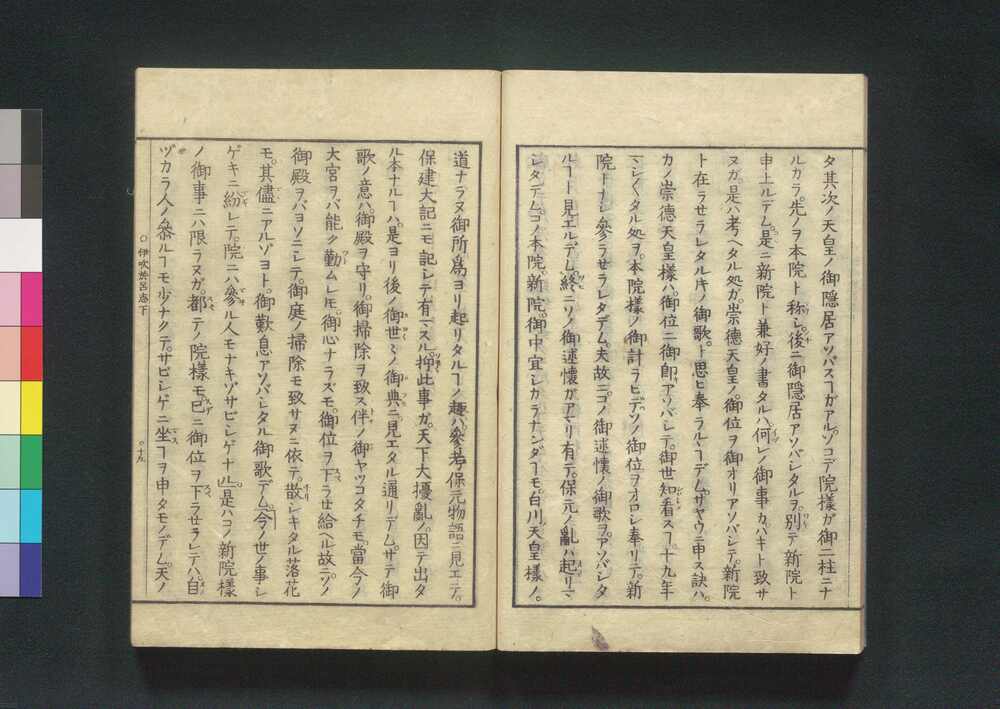 タ其次ノ天皇ノ御隱居アソバスヿガアルゾコデ院樣ガ御二柱ニナ
ルカラ先ヲ本院ト称シ後ニ御隱居アソバシタルヲ別テ新院ト
申上ルデム是ニ新院ト兼好ノ書タルハ何レノ御事カハキト致サ
ヌガ是ハ考ヘタル処ガ崇德天皇ノ御位ヲ御オリアソバシテ新院
ト在ラセラレタルキノ御歌ト思ヒ奉ラルヽヿデムサヤウニ申ス訣ハ
カノ崇德天皇樣ハ御位ニ御即アソバシテ御世知看スヿ十九年
マシ〱タル処ヲ本院樣ノ御計ラヒデソノ御位ヲオロシ奉リテ新
院トナシ參ラセラレタデム夫故ニコノ御述懷ノ御歌ヲアソバシタ
ルヿト見エルデム終ニソノ御述懷ガアマリ有テ保元ノ亂ハ起リマ
シタデムコノ本院新院御中宜シカラナンダヿモ白川天皇樣ノ
道ナラヌ御所爲ヨリ起リタルヿノ趣ハ參考保元物語ニ見エテ
保建大記ニモ記シテ有マスル抑此事ガ天下大擾亂ノ因テ出タ
ル本ナルヿハ是ヨリ後ノ御世々ノ御典ニ見エタル通リデムサテ御
歌ノ意ハ御殿ヲ守リ御掃除ヲ致ス伴ノ御ヤツコタチモ當今ノ
大宮ヲバ能ク勤ムレモ御心ナラズモ御位ヲ下ラセ給ヘル故ニソノ
御殿ヲバヨソニシテ御庭ノ掃除モ致サヌニ依テ散シキタル落花
モ其儘ニアルゾヨト御歎息アソバシタル御歌デム今ノ世ノ事シ
ゲキニ紛レテ院ニハ參ル人モナキゾサビシゲナル是ハコノ新院樣
ノ御事ニハ限ラヌガ都テノ院樣モ已ニ御位ヲ下ラセラレテハ自
ヅカラ人ノ參ルヿモ少ナクテサビシゲニ坐スヿヲ申タモノデム天ノ
○伊吹於呂志下
○十九